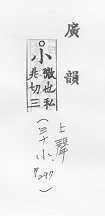 廣韻
小 微也私兆切三
上聲
(三十小)
P297